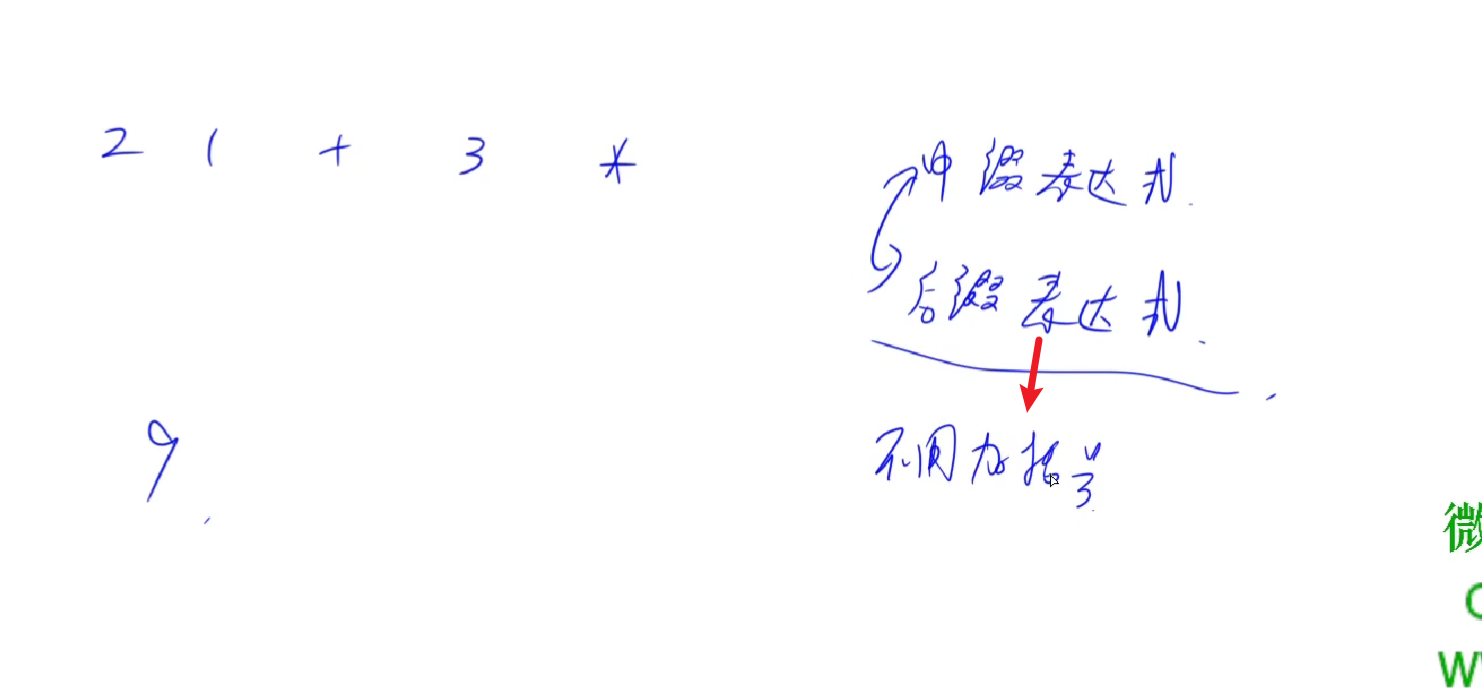 2 1 + 3 *
中缀表达式.
后缀表达式.
9.
不用加括号
微
W